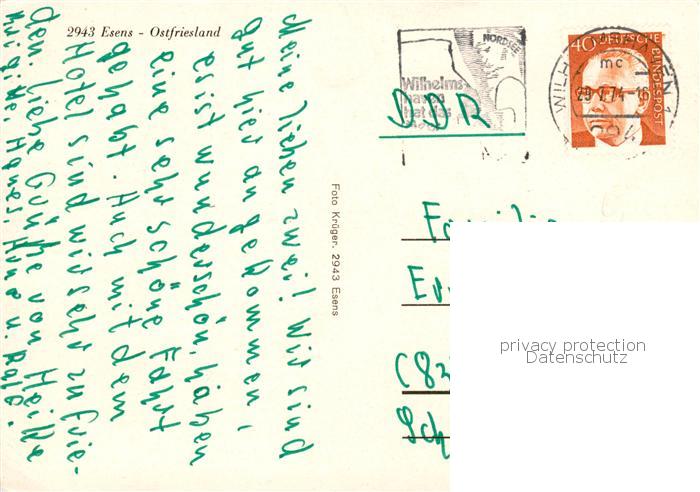 2943 Esens - Ostfriesland
Meine lieben zwei! Wir sind
gut hier angekommen,
es ist wunderschön, haben
eine sehr schöne Fahrt
gehabt. Auch mit dem
Hotel sind wir sehr zufrie-
den. Liebe Grüße von Heike
Agnes, u.
Foto Krüger, 2943 Esens
NORDSEE
Wilhelms-
haven
hat das
DDR
WILH
mc
29.7.74-16
294
40 DEUTSCHE
BUNDESPOST
Familie
(82
Sch
privacy protection
Datenschutz